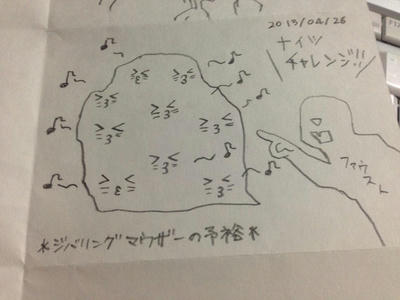 2013/04/26
ナイツ
チャレンジ!!
ファウ
スト
*ジバリングマウザーの予裕*